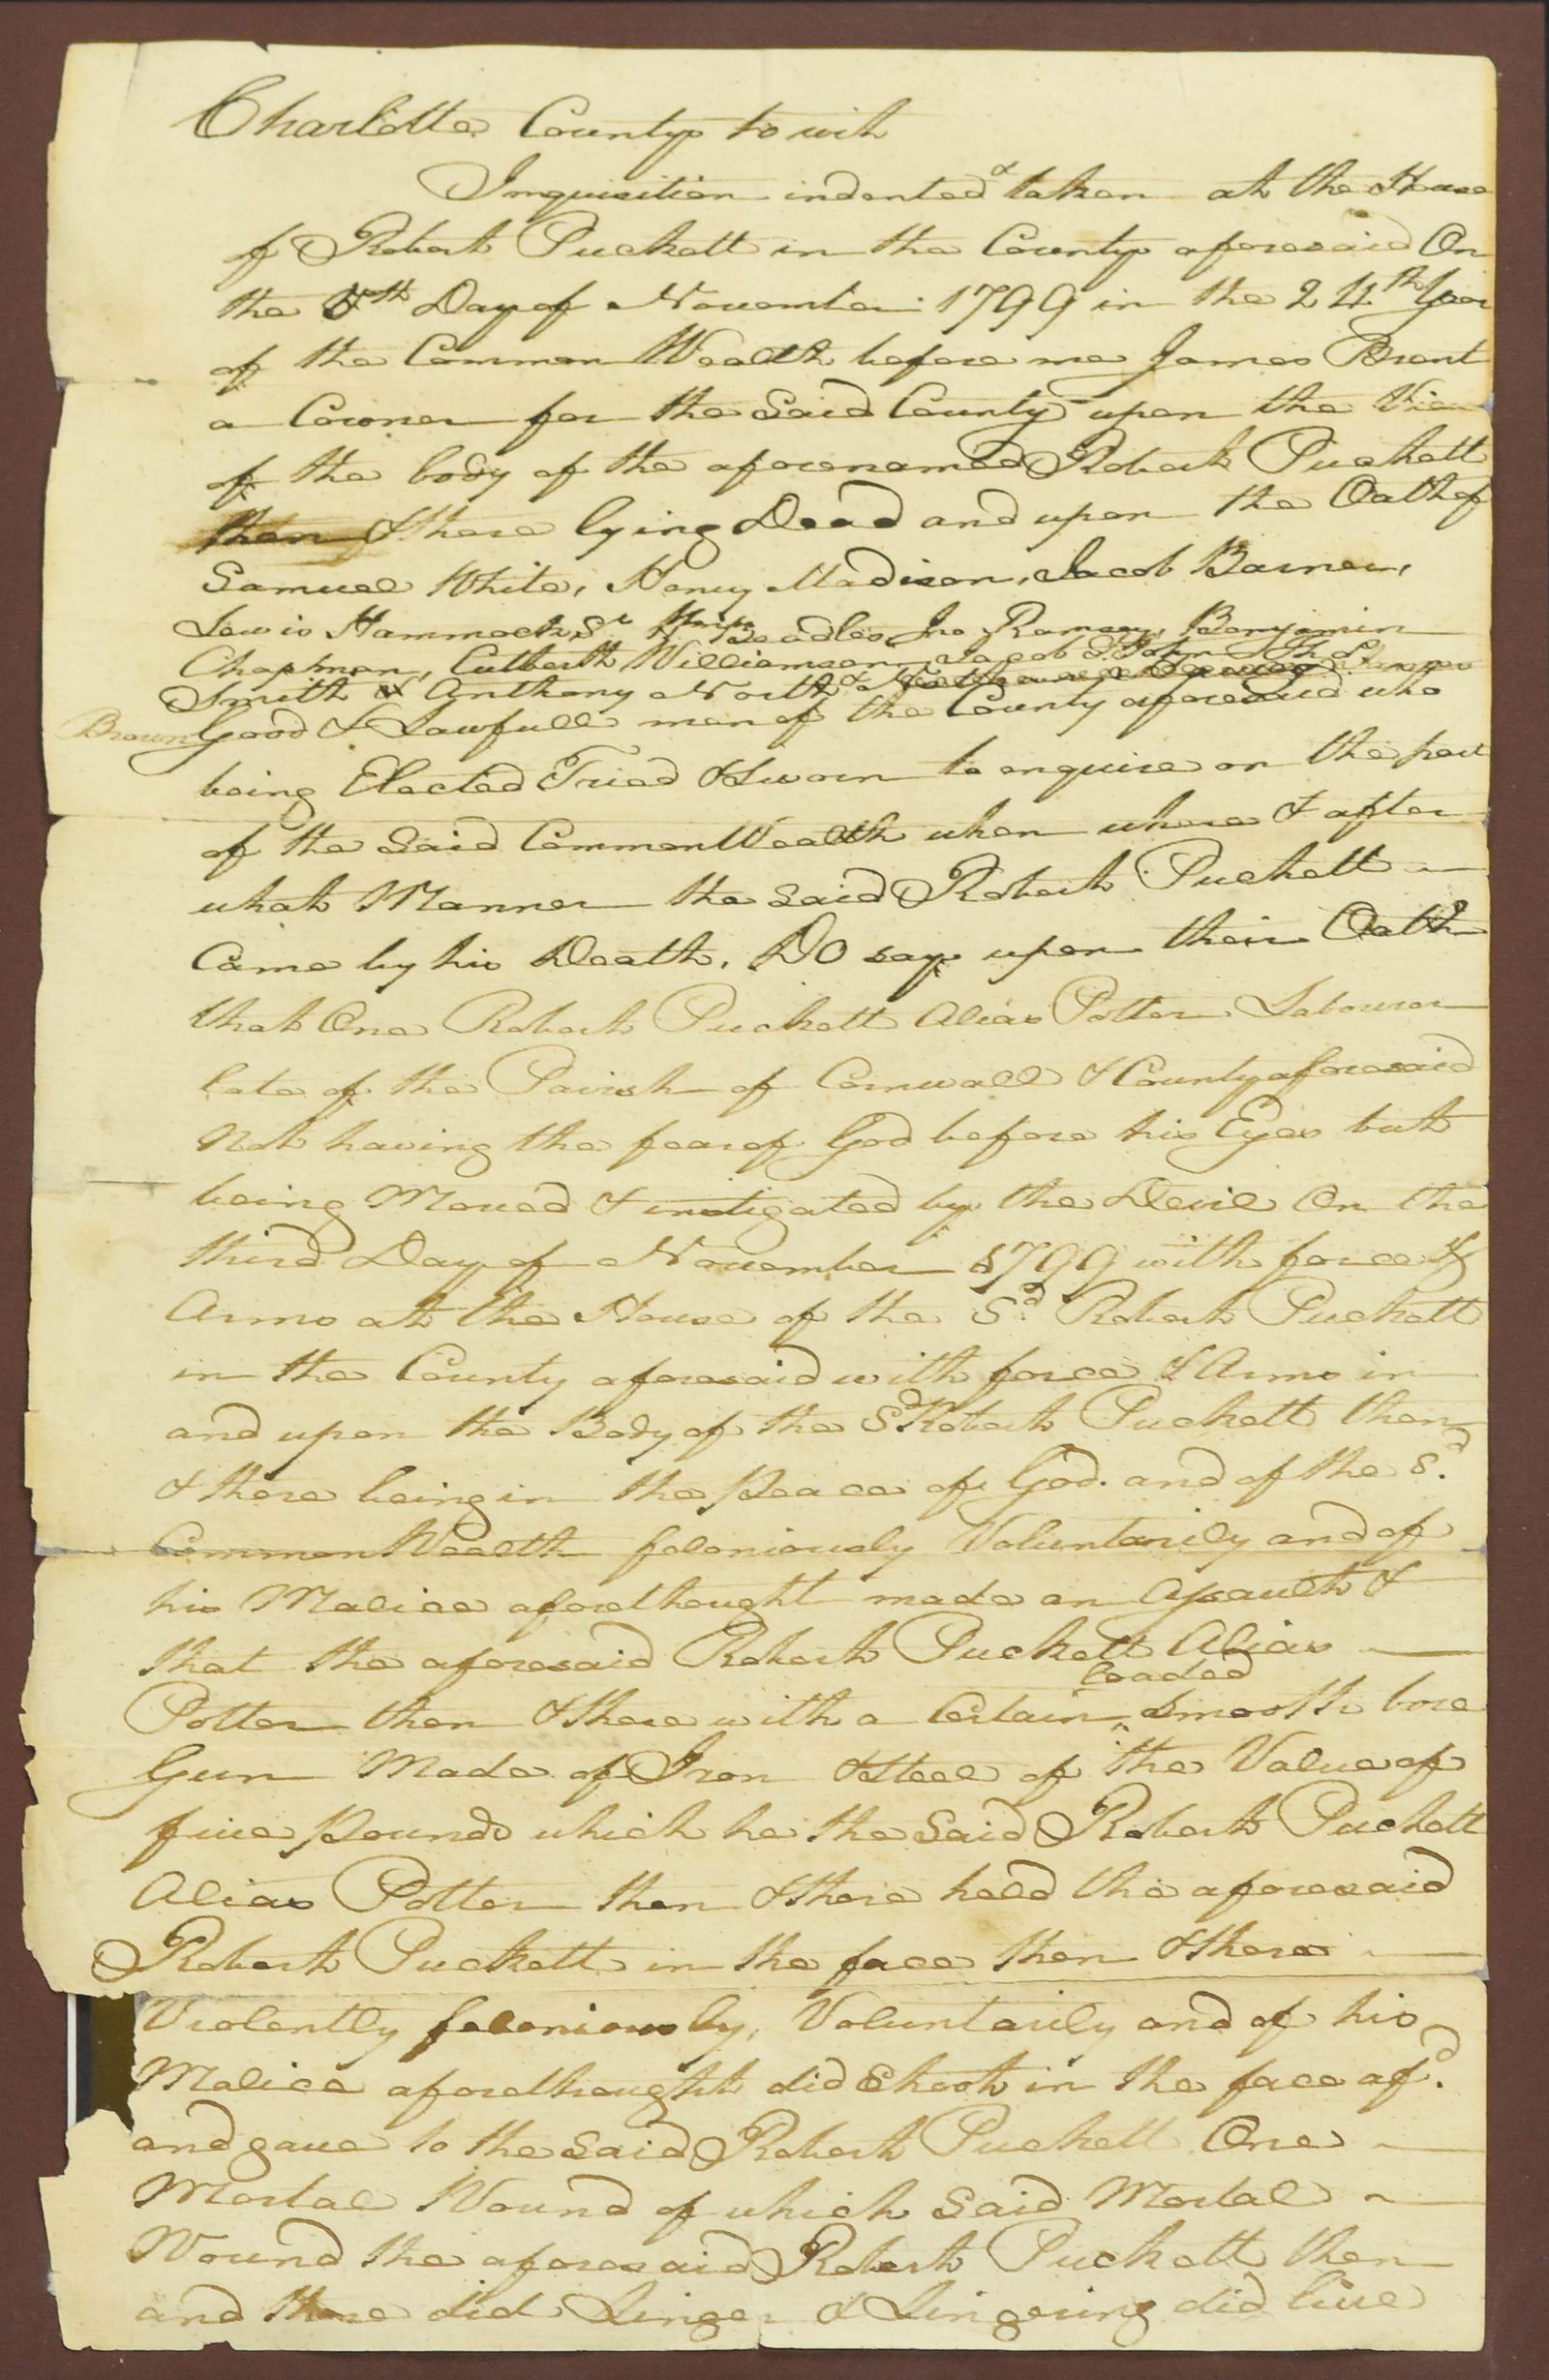 Charlotte County to wit
Inquisition indented & taken at the House
of Robert Puckett in the County aforesaid On
the 5th Day of November 1799 in the 24th Year
of the Common Wealth before me James Brent
a Coroner for the Said County upon the View
of the body of the aforenamed Robert Puckett
then & there lying Dead and upon the Oath of
Samuel White, Henry Madison, Jacob Barnes,
Lewis Hammock Sr Beadles, Jno Ramsey, Benjamin
Chapman, Cutberth Williamson, Jacob
Smith & Anthony North &
Brown Good & Lawfull men of the County aforesaid who
being Elected Tried & Sworn to enquire on the part
of the Said CommonWealth when where & after
what Manner the Said Robert Puckett
Came by his Death, DO say upon their Oath
that One Robert Puckett Alias Potter Labourer
late of the Parish of Cornwall & County aforesaid
Not having the fear of God before his Eyes but
being Moved & instigated by the Devil On the
third Day of November 1799 with force &
Arms at the House of the Sd. Robert Puckett
in the County aforesaid with force & Arms in
and upon the Body of the Sd Robert Puckett then
& there being in the peace of God. and of the Sd.
CommonWealth feloniously Voluntarily and of
his Malice aforethought made an Assault &
that the aforesaid Robert Puckett Alias
Potter then & there with a Certain loaded Smooth bore
Gun Made of Iron & Steel of the Value of
five pounds which he the Said Robert Puckett
Alias Potter then & there held the aforesaid
Robert Puckett in the face then & there
Violently feloniously, Voluntarily and of his
Malice aforethought did Shoot in the face afd.
and gave to the Said Robert Puckett One
Mortal Wound of which Said Mortal
Wound the aforesaid Robert Puckett then
and there did Linger & Lingering did live